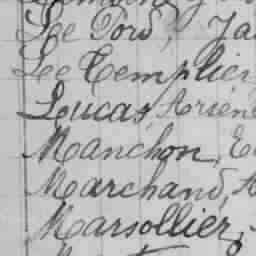 Le Tord, Ja
Le Templier
Lucas, Arsène
Manchon, E
Marchand, A
Marsollier,